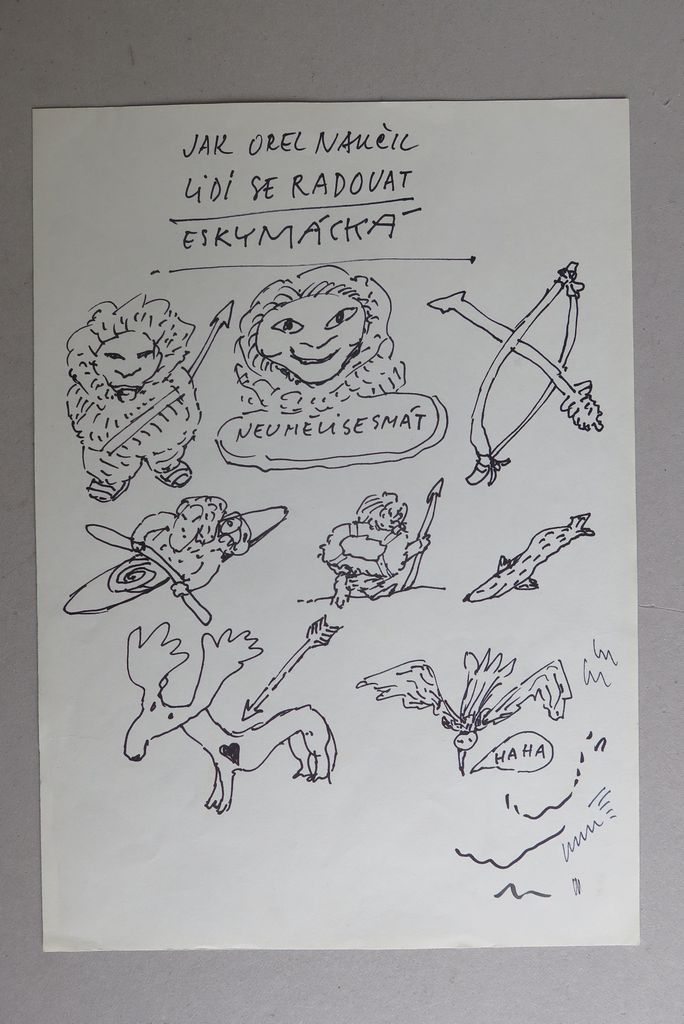 JAK OREL NAUČIL
LIDÍ SE RADOVAT
ESKYMÁCKÁ
NEUMĚLI SE SMÁT
HA HA